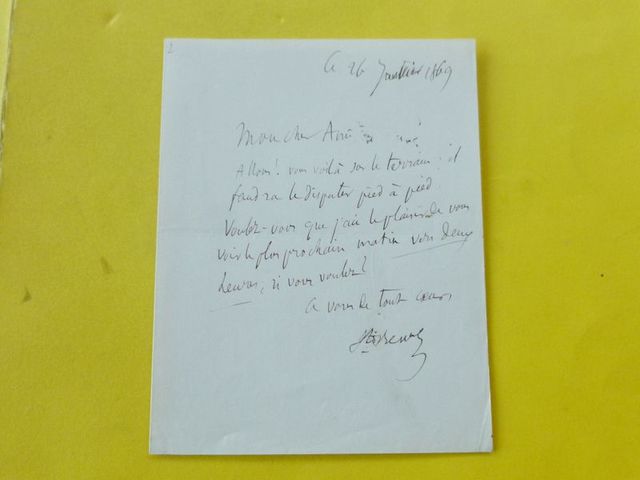 2
26 Janvier 1869
Mon cher Ami
Allons! vous voilà sur le terrain : il
faudra le disputer pied à pied.
Voulez-vous que j'aie le plaisir de vous
voir le plus prochain matin vers deux
heures, si vous voulez?
à vous de tout cœur
Ste Beuve